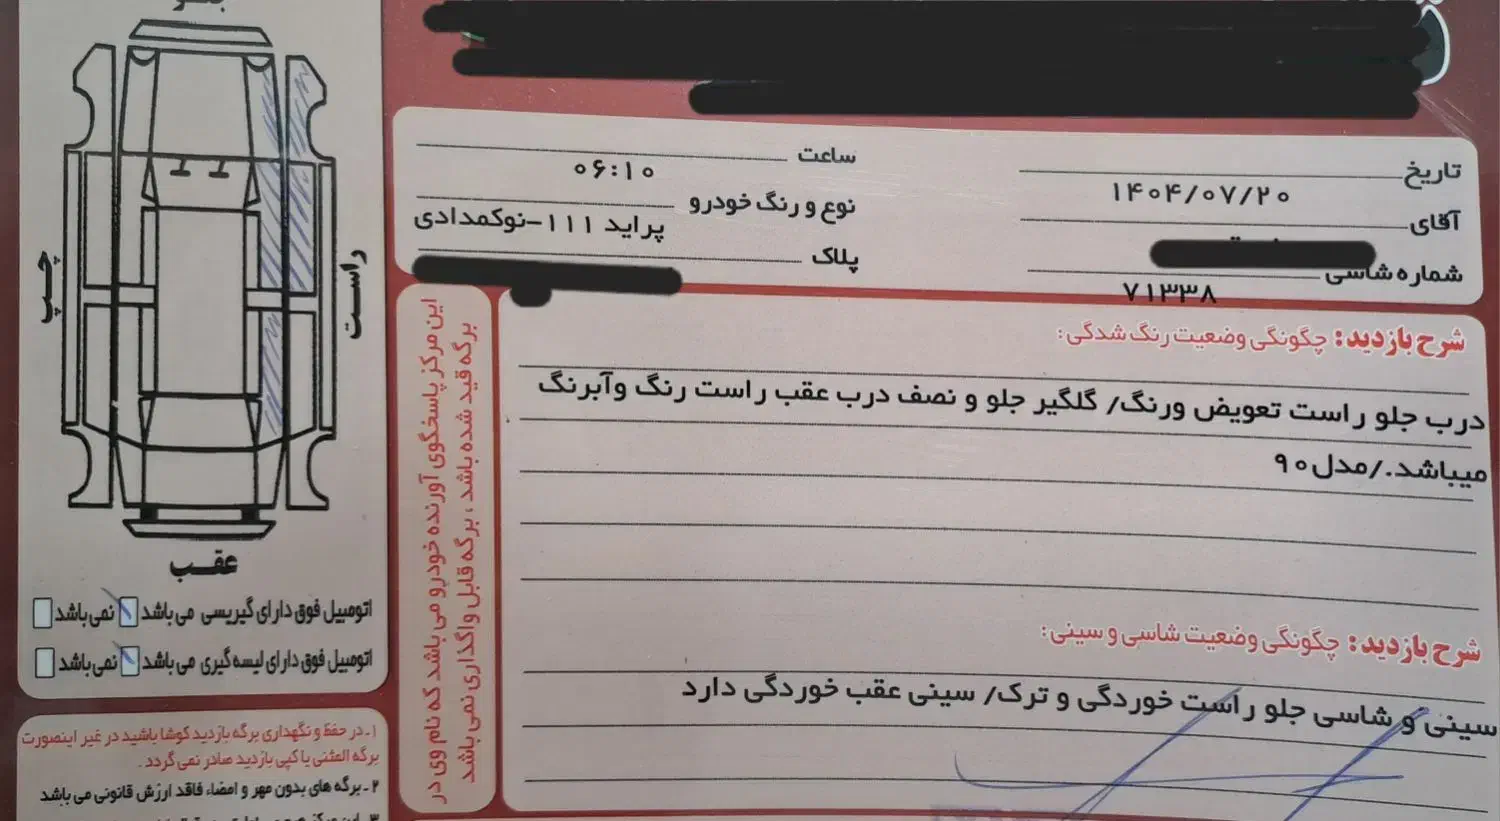 جلو
تاریخ ۱۴۰۴/۰۷/۲۰
ساعت ۰۶:۱۰
آقای
نوع و رنگ خودرو پراید ۱۱۱-نوکمدادی
شماره شاسی ۷۱۳۳۸
پلاک
شرح بازدید: چگونگی وضعیت رنگ شدگی:
درب جلو راست تعویض ورنگ/ گلگیر جلو و نصف درب عقب راست رنگ وآبرنگ
میباشد./مدل۹۰
شرح بازدید: چگونگی وضعیت شاسی و سینی:
سینی و شاسی جلو راست خوردگی و ترک/ سینی عقب خوردگی دارد
این مرکز پاسخگوی آورنده خودرو می باشد که نام وی در
برگه قید شده باشد ، برگه قابل واگذاری نمی باشد
راست
چپ
عقب
اتومبیل فوق دارای گیریسی می باشد نمی باشد
اتومبیل فوق دارای لیسه گیری می باشد نمی باشد
۱- در حفظ و نگهداری برگه بازدید کوشا باشید در غیر اینصورت
برگه المثنی یا کپی بازدید صادر نمی گردد .
۲- برگه های بدون مهر و امضاء فاقد ارزش قانونی می باشد